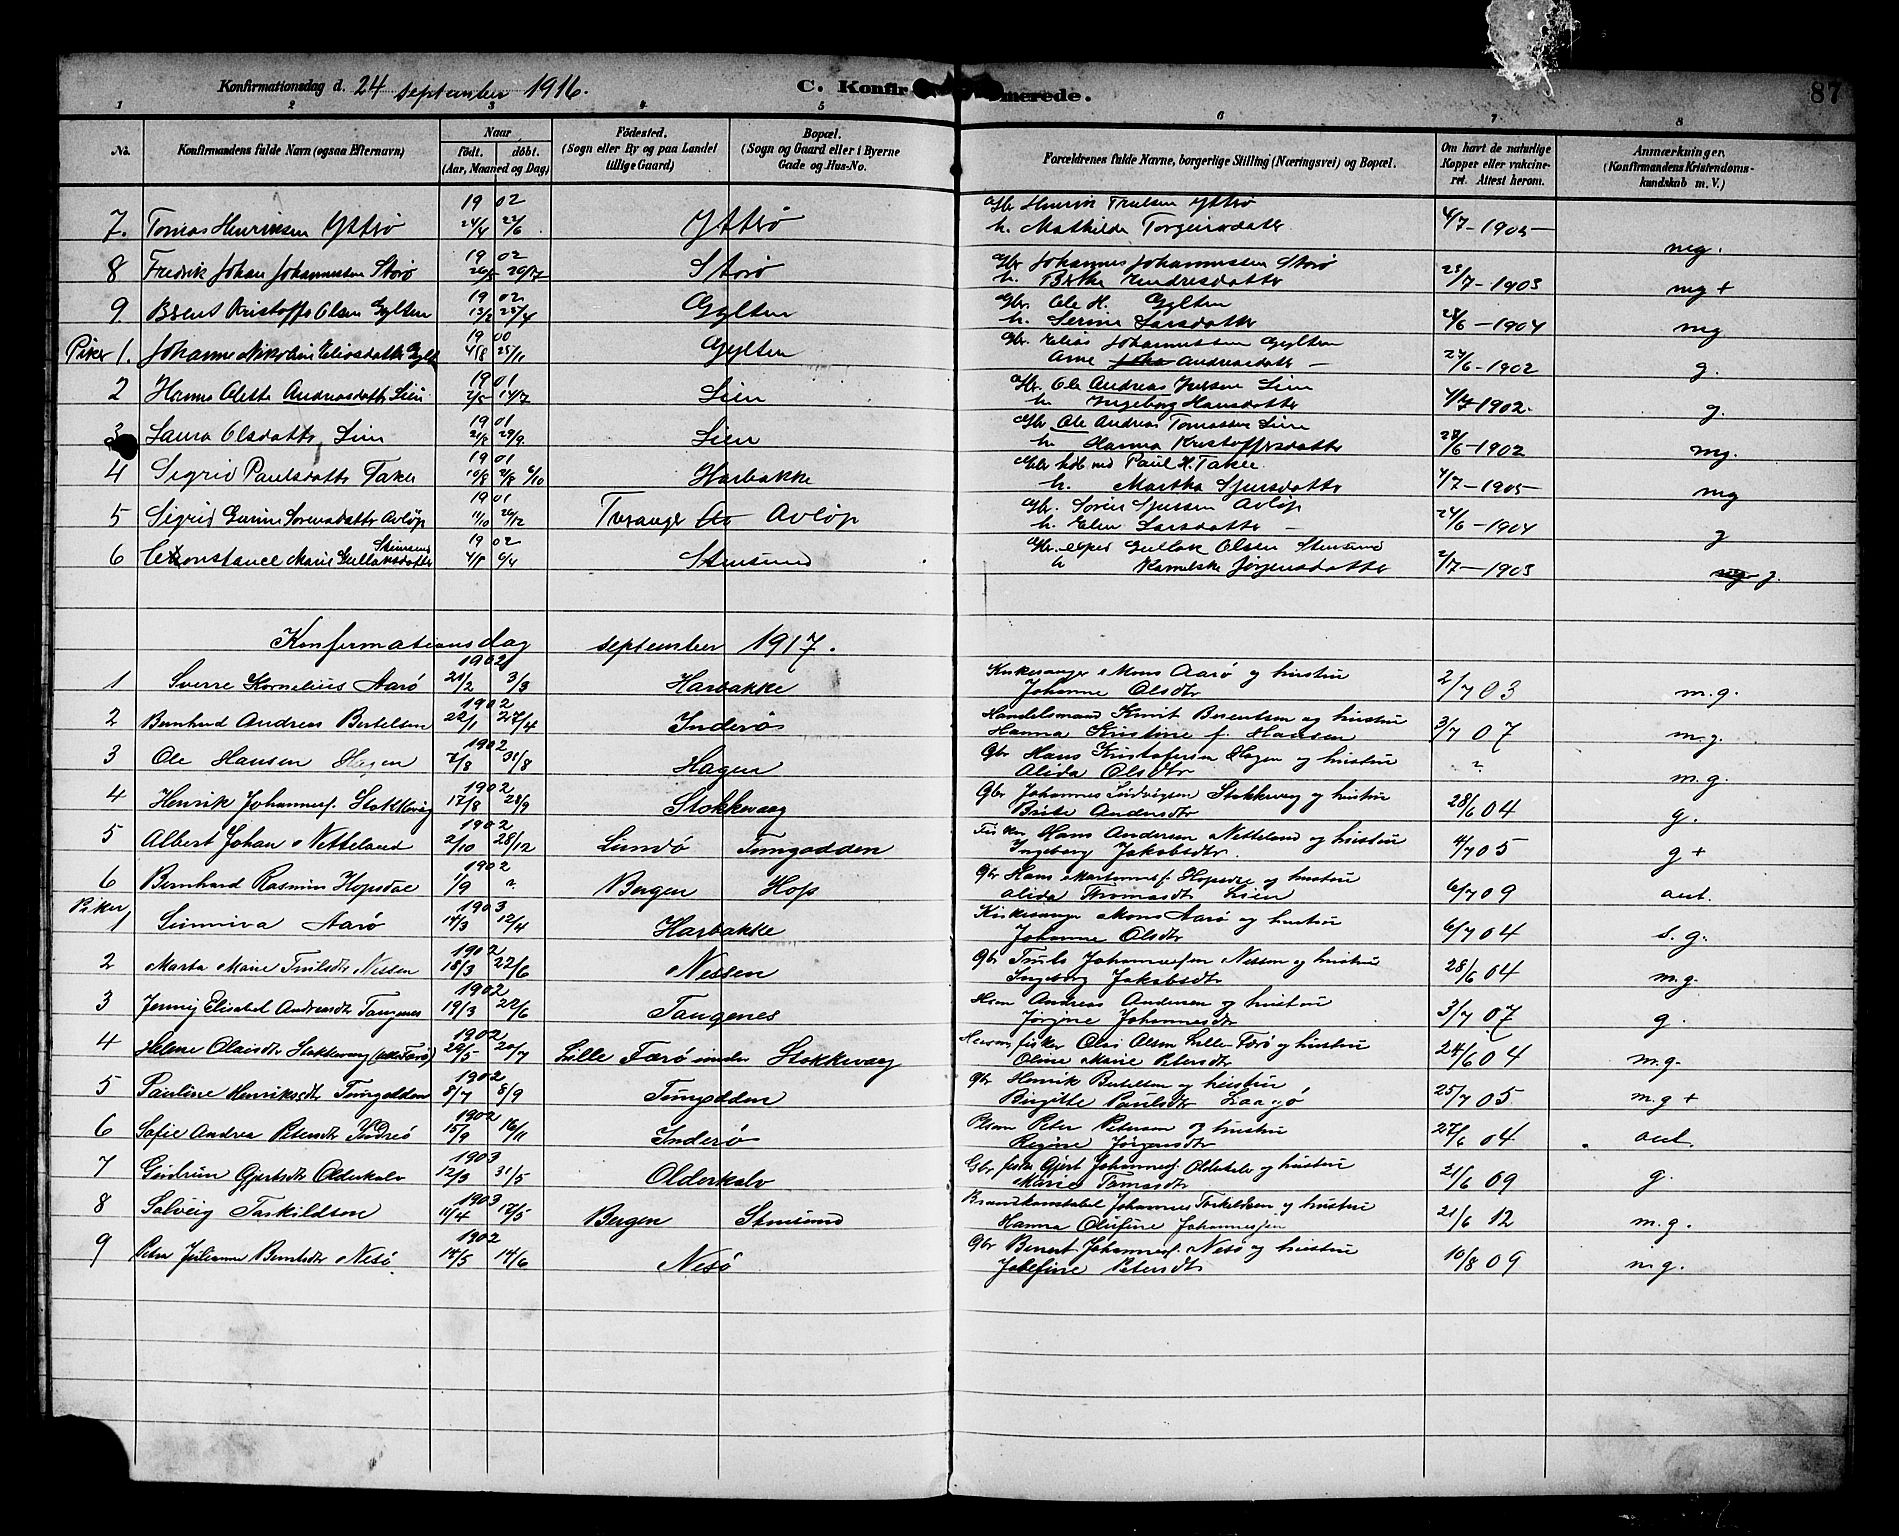 Konfirmationsdag d. 24 september 1916. C. Konfirmerede. 87
1 2 3 4 5 6 7 8
No. Konfirmandens fulde Navn (ogsaa Efternavn) Naar født. døbt. (Aar, Maaned og Dag) Fødested. (Sogn eller By og paa Landet tillige Gaard) Bopæl. (Sogn og Gaard eller i Byerne Gade og Hus-No. Forældrenes fulde Navne, borgerlige Stilling (Næringsvei) og Bopæl. Om havt de naturlige Kopper eller vakcineret. Attest herom. Anmærkninger. (Konfirmandens Kristendomskundskab m. V.)
19 02 Gbr Henrik Trulsen Yttrö
7. Tomas Henriksen Yttrö 24/4 22/6 Yttrö h. Mathilde Torgeirsdatter 4/7-1905 mg.
19 02 Gbr Johannes Johannessen Storö
8 Fredrik Johan Johannessen Storö 20/5 20/7 Storö h. Birthe Endresdatter 23/7-1903 mg +
19 02 Gbr. Ole H. Gylten
9. Bernt Kristoffe Olsen Gylten 13/2 23/4 Gylten h. Serine Larsdatter 28/6-1904 mg
19 00 Gbr. Elias Johannessen Gylten
Piker 1. Johanne Nikoline Eliasdatter Gylt 4/8 25/11 Gylten Ane Andreasdatter — 24/6-1902 g.
19 01 Gbr. Ole Andreas Iversen Lien
2 Hanna Olette Andreasdatter Lien 2/5 14/7 Lien h. Ingeborg Hansdatter 4/7 1902. g.
19 01 Gbr. Ole Andreas Tomassen Lien
3 Laura Olsdatter Lien 21/8 29/9 Lien h. Hanna Kristoffersdatter 28/6-1902 mg.
19 01 Gbr Paul H. Takle
4 Sigrid Paulsdatter Takle 10/8 6/10 Harbakke h. Martha Sjursdatter 4/7-1905 mg
19 01 Gbr. Sören Sjursen Avlöp
5 Sigrid Gurine Sorensdatter Avlöp 11/10 26/12 Avlöp h. Elen Larsdatter — 24/6-1904 g
19 02 Gbr. exped Gullak Olsen Stensund
6 Constance Marie Gullaksdatter Stensund 4/8 6/4 Stensund h Jörgensdatter 2/7-1903 g.
Konfirmationsdag september 1917.
1902 Kirkesanger Mons Aarö og hustru
1 Sverre Kornelius Aarö 21/2 3/3 Harbakke Johanne Olsdtr 2/7 03 m.g.
1902 Handelsmand Knut Berentsen og hustru
2 Bernhard Andreas Bertelsen 22/1 27/4 Inderö Hanna Kristine f. Hansen 3/7 07 m.g.
1902 Gbr Hans Kristofersen Hagen og hustru
3 Ole Hansen Hagen 7/8 31/8 Hagen Alida Olsdtr ? m.g.
1902 Gbr Johannes Ludvigsen Stokkevaag og hustru
4 Henrik Johannesf. Stokkevåg 17/8 28/9 Stokkevaag Brite Andersdtr 28/6 04 g.
1902 Fisker Hans Andersen Netteland og hustru
5 Albert Johan Netteland 2/10 28/12 Lundö Tungodden Ingeborg Jakobsdtr. 4/7 05 g +
1902 Gbr Hans Martinusf. Hopsdal og hustru
6 Bernhard Rasmus Hopsdal 1/9 ? Bergen Hop Alida Thomasdtr Lien 6/7 09 aut.
Piker 1903 Kirkesanger Mons Aarö og hustru
1 Sunniva Aarö 14/3 12/4 Harbakke Johanne Olsdtr 6/7 04 s.g.
1902 Gbr Truls Johannesen Nessen og hustru
2 Marta Marie Trulsdtr Nessen 18/3 22/6 Nessen Ingeborg Jakobsdtr 28/6 04 m.g.
1902 Hsm Andreas Andersen og hustru
3 Jenny Elisabet Andreasdtr Tangenes 19/3 22/6 Tangenes Jörgine Johannesdtr 3/7 07 g.
1902 fisker Olai Olsen Lille Færö og hustru
4 Helene Olaisdtr Stokkevaag (Lille Færö) 29/5 20/7 Lille Færö under Stokkevaag Oline Marie Petersdtr 24/6 04 m.g.
1902 Gbr Henrik Bertelsen og hustru
5 Pauline Henriksdtr Tungodden 8/7 8/9 Tungodden Birgitte Paulsdtr 25/7 05 m.g +
1902 Plsm Peter Peterson og hustru
6 Sofie Andrea Petersdtr Indreö 15/9 16/11 Inderö Regine Jörgensdtr 27/6 04 aut.
1903 Gbr. fisker Gjert Johannesf. Olderkalv og hustru
7 Gudrun Gjertsdtr Olderkalv 12/3 31/5 Olderkalv Marie Tomasdtr 21/6 09 g.
1903 Brandkonstabel Johannes Torkildsen og hustru
8 Solveig Torkildsen 14/4 17/5 Bergen Stensund Hanna Olufine Johannessen 21/6 12 m.g.
1902 Gbr Berent Johannesf. Nesö og hustru
9 Petra Julianne Berntsdtr Nesö 14/5 14/6 Nesö Josefine Petersdtr 10/8 09 m.g.